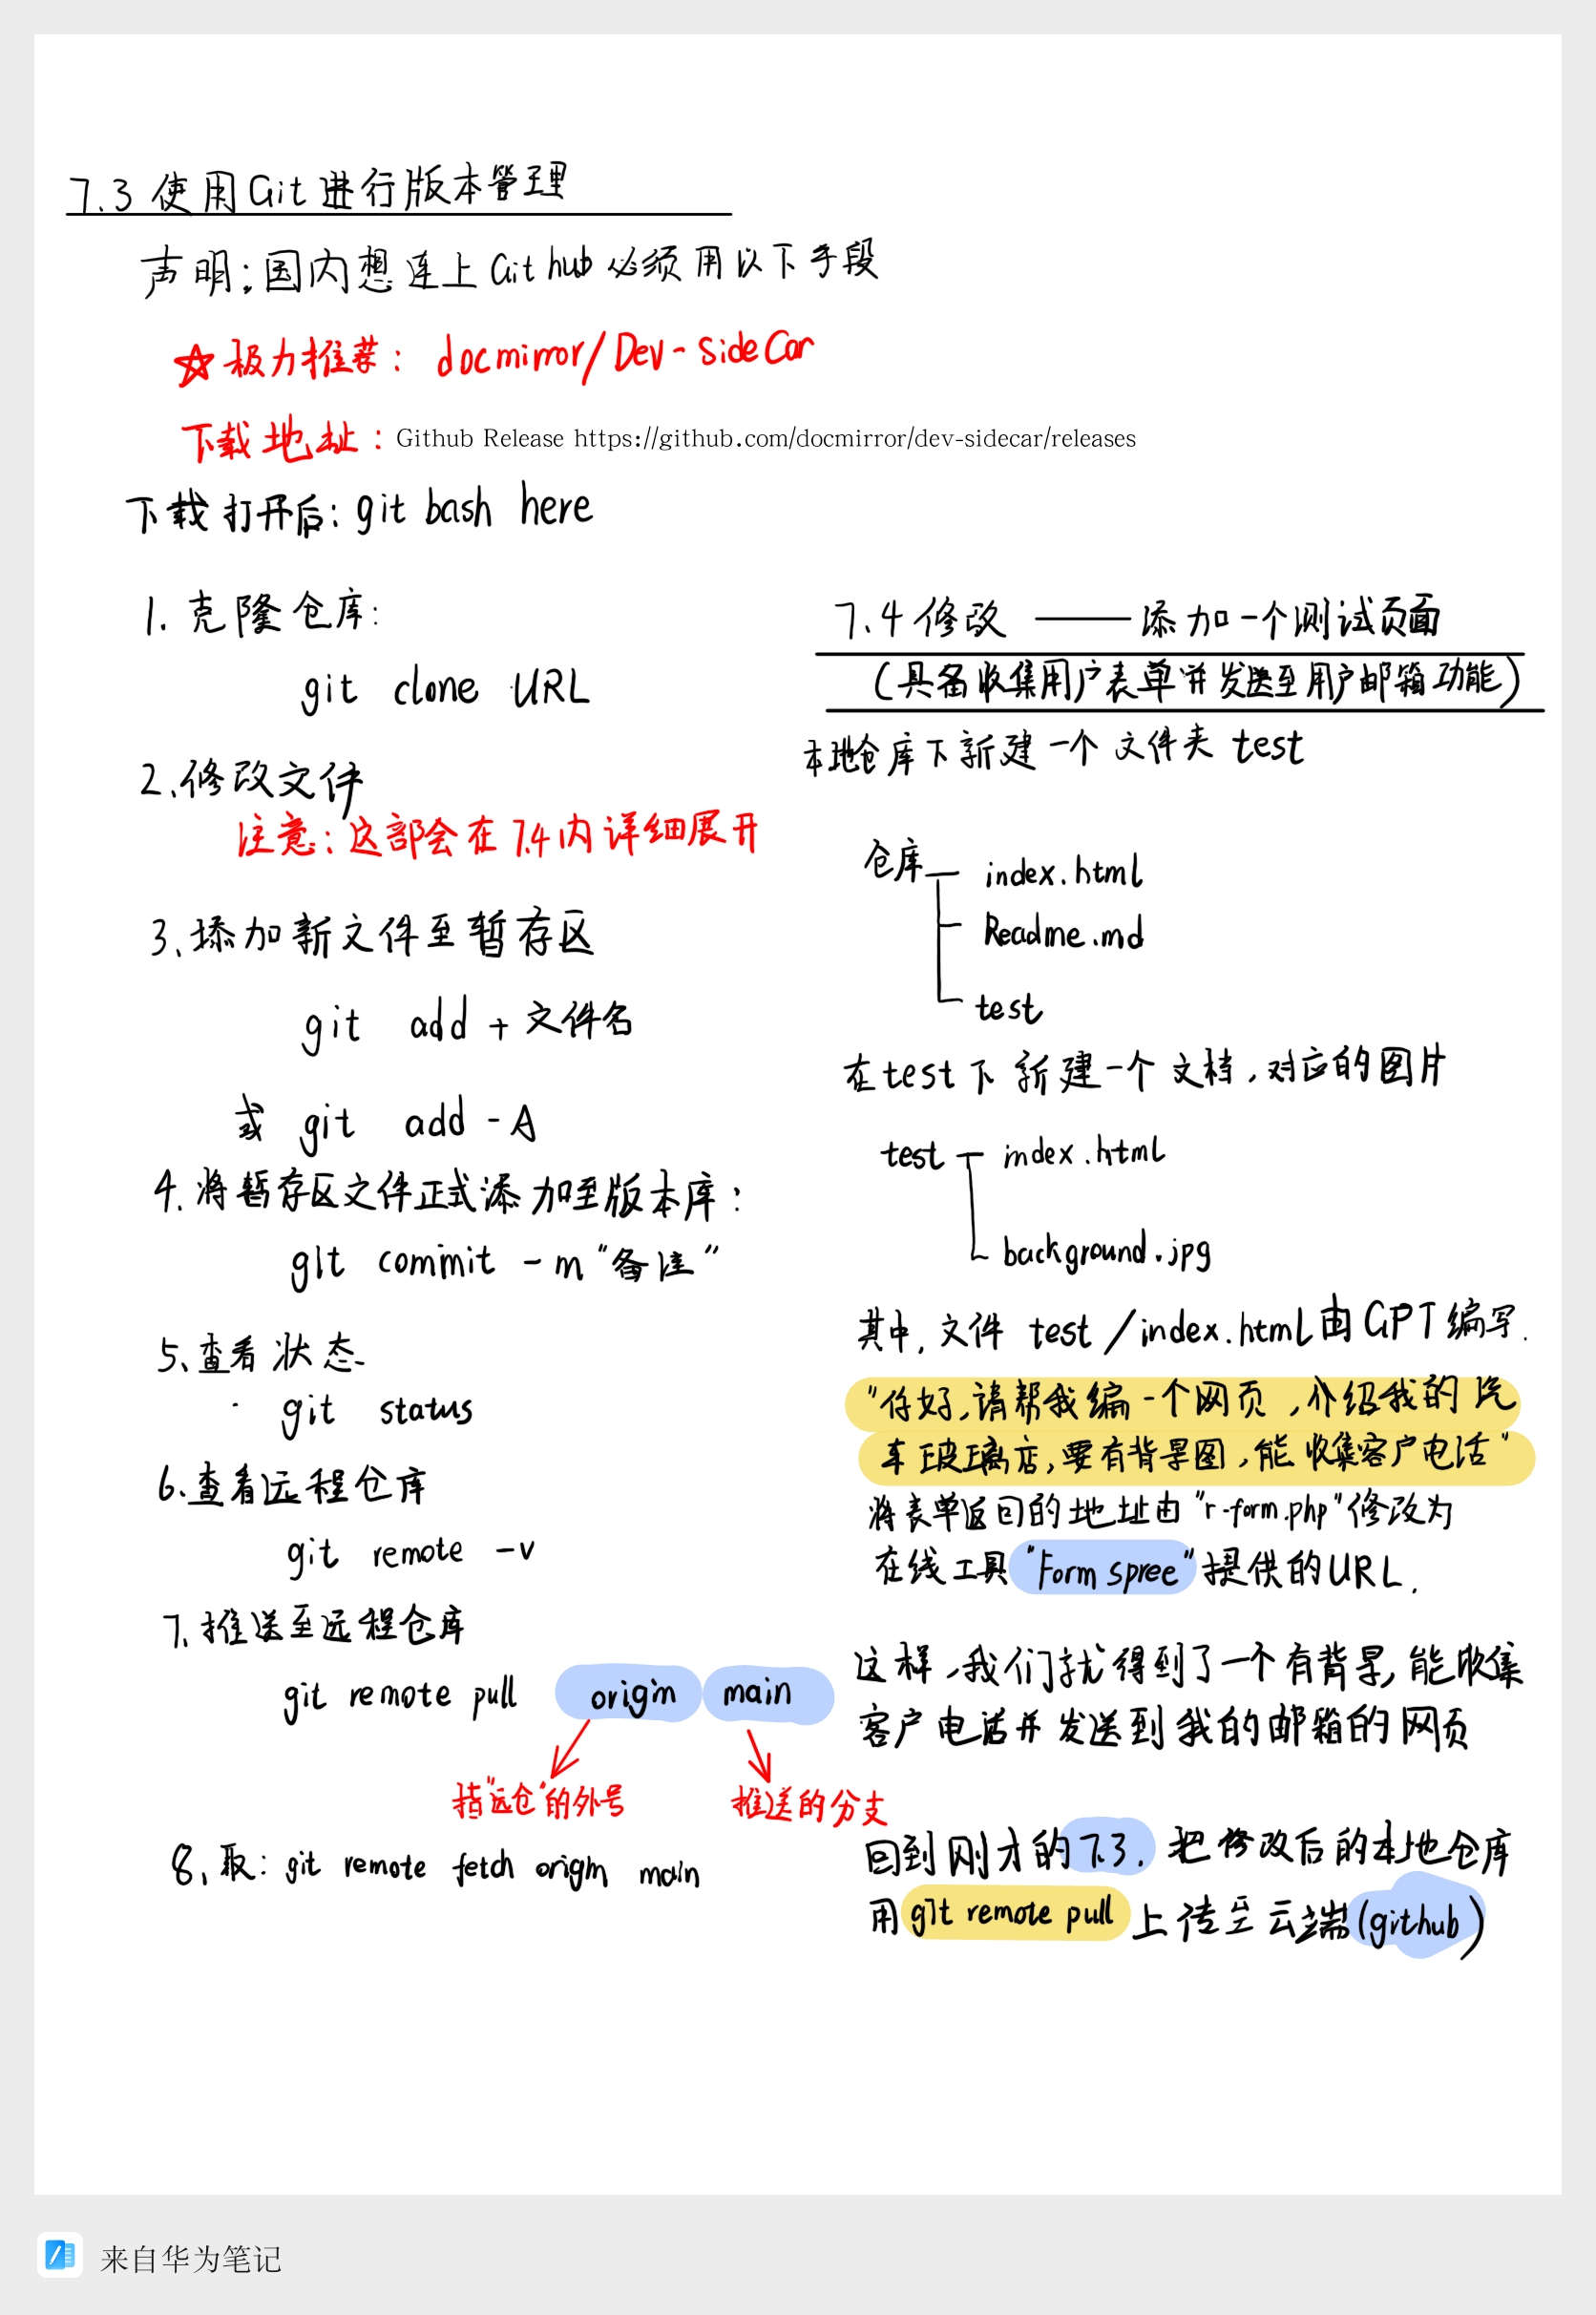 7.3 使用Git进行版本管理
声明：国内想连上Github必须用以下手段
☆极力推荐：docmirror/Dev-SideCar
下载地址：Github Release https://github.com/docmirror/dev-sidecar/releases
下载打开后：git bash here
1. 克隆仓库：
git clone URL
2、修改文件
注意：这部会在7.4内详细展开
3、添加新文件至暂存区
git add + 文件名
或 git add -A
4. 将暂存区文件正式添加至版本库：
git commit -m “备注”
5、查看状态
git status
6、查看远程仓库
git remote -v
7、推送至远程仓库
git remote pull origin main
指“远仓”的外号
推送的分支
8、取：git remote fetch origin main
7.4 修改 ——添加一个测试页面
（具备收集用户表单并发送至用户邮箱功能）
本地仓库下新建一个文件夹 test
仓库 index.html
Readme.md
test
在test下新建一个文档，对应的图片
test index.html
background.jpg
其中，文件 test/index.html由GPT编写.
“你好，请帮我编一个网页，介绍我的汽
车玻璃店，要有背景图，能收集客户电话”
将表单返回的地址由“r-form.php”修改为
在线工具“Form spree”提供的URL.
这样，我们就得到了一个有背景，能收集
客户电话并发送到我的邮箱的网页
回到刚才的7.3. 把修改后的本地仓库
用git remote pull上传至云端(github)
来自华为笔记